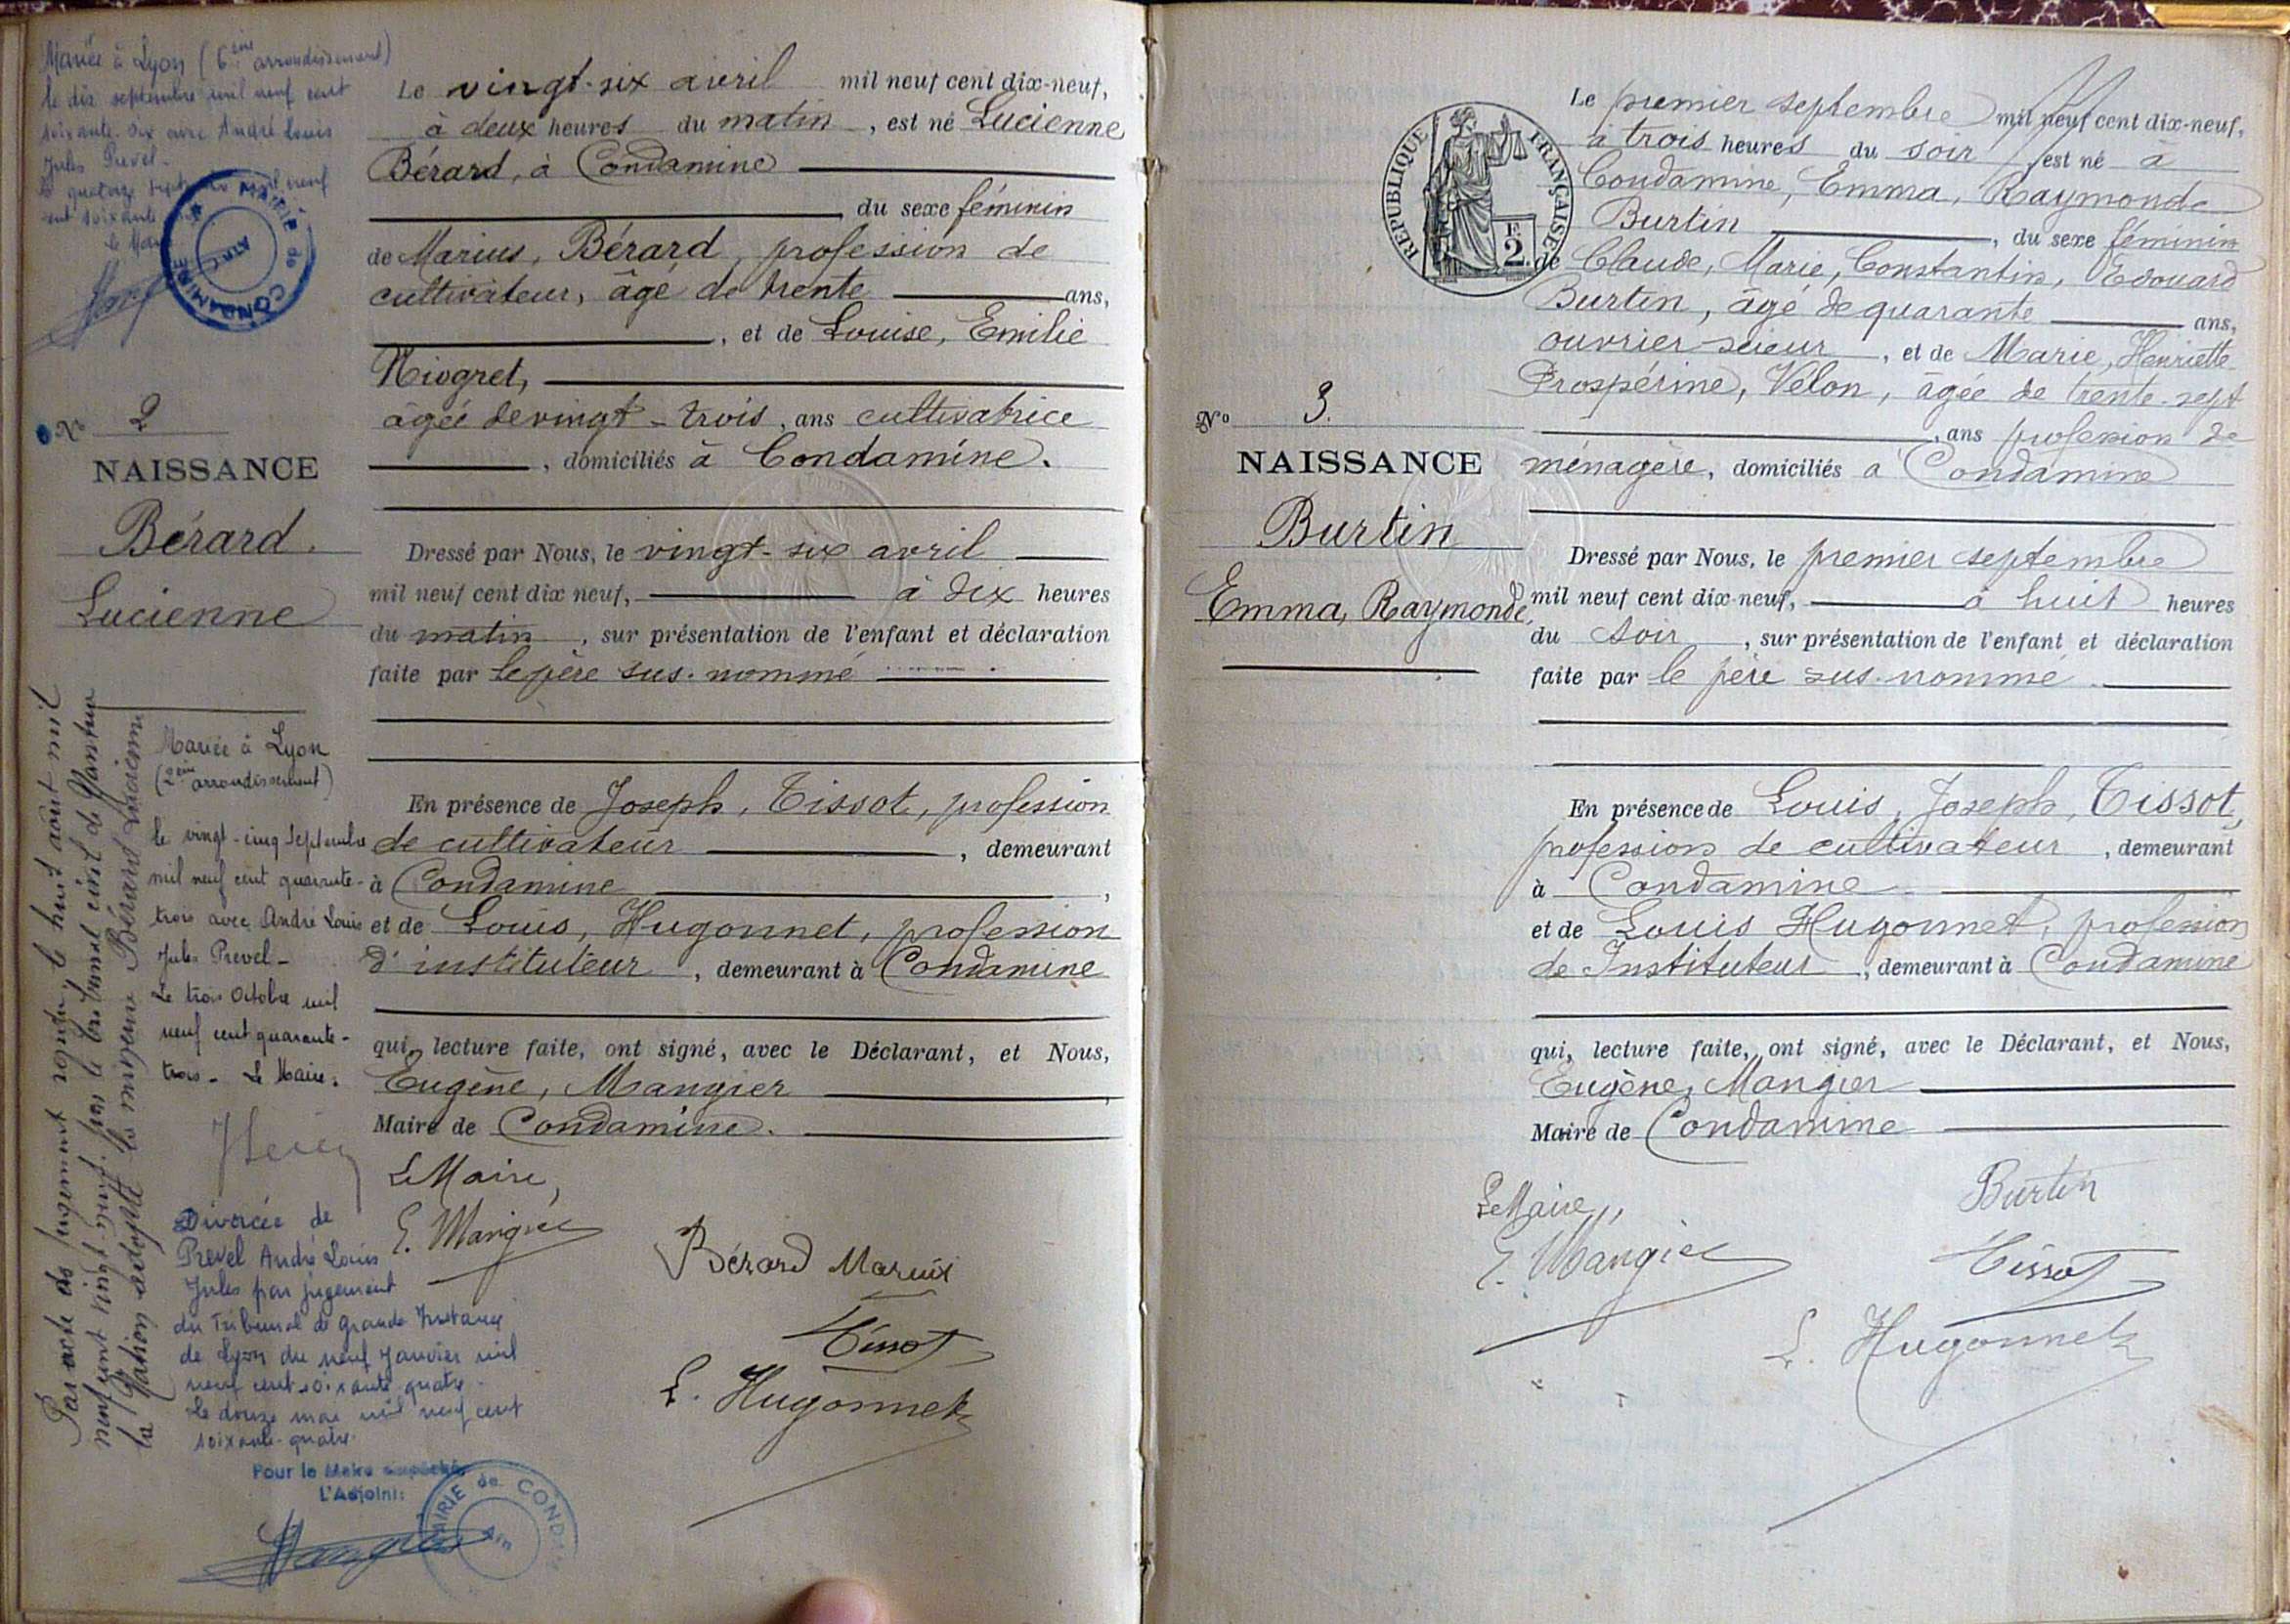 Mariée à Lyon (6ème arrondissement)
le dix septembre mil neuf cent
soixante-six avec André Louis
Jules Prevel -
le quatorze mil neuf
cent soixante
le Maire
MAIRIE de CONDAMINE
N° 2
NAISSANCE
Bérard.
Lucienne
Par acte de jugement rendu le huit août mil
neuf cent vingt-huit par le tribunal civil de Nantua
la Nation adopte la mineure Bérard Lucienne
Mariée à Lyon
(2ème arrondissement)
le vingt-cinq Septembre
mil neuf cent quarante-
trois avec André Louis
Jules Prevel -
Le trois Octobre mil
neuf cent quarante-
trois - Le Maire:
Divorcée de
Prevel André Louis
Jules par jugement
du Tribunal de Grande Instance
de Lyon du neuf Janvier mil
neuf cent soixante quatre -
Le douze mai mil neuf cent
soixante-quatre-
Pour le Maire empêché
L'Adjoint:
MAIRIE de COND
Ain
Le vingt-six avril mil neuf cent dix-neuf,
à deux heures du matin, est né Lucienne
Bérard, à Condamine
du sexe féminin
de Marius, Bérard, profession de
cultivateur, âgé de trente ans,
, et de Louise, Emilie
Niogret,
âgée de vingt-trois, ans cultivatrice
, domiciliés à Condamine.
Dressé par Nous, le vingt-six avril
mil neuf cent dix neuf, à dix heures
du matin, sur présentation de l'enfant et déclaration
faite par le père sus-nommé
En présence de Joseph, Tissot, profession
de cultivateur, demeurant
à Condamine,
et de Louis, Hugonnet, profession
d'instituteur, demeurant à Condamine
qui, lecture faite, ont signé, avec le Déclarant, et Nous,
Eugène, Mangier
Maire de Condamine.
Le Maire,
E. Mangier
Bérard Marius
Tissot
L. Hugonnet
RÉPUBLIQUE FRANÇAISE
F.
2.
N° 3.
NAISSANCE
Burtin
Emma, Raymonde,
Le premier septembre mil neuf cent dix-neuf,
à trois heures du soir, est né à
Condamine, Emma, Raymonde
Burtin, du sexe féminin
de Claude, Marie, Constantin, Edouard
Burtin, âgé de quarante ans,
ouvrier scieur, et de Marie, Henriette
Prospérine, Velon, âgée de trente-sept
, ans profession de
ménagère, domiciliés à Condamine
Dressé par Nous, le premier septembre
mil neuf cent dix-neuf, à huit heures
du soir, sur présentation de l'enfant et déclaration
faite par le père sus-nommé.
En présence de Louis, Joseph, Tissot,
profession de cultivateur, demeurant
à Condamine
et de Louis Hugonnet, profession
de Instituteur, demeurant à Condamine
qui, lecture faite, ont signé, avec le Déclarant, et Nous,
Eugène, Mangier
Maire de Condamine
Le Maire,
E. Mangier
Burtin
Tissot
L. Hugonnet